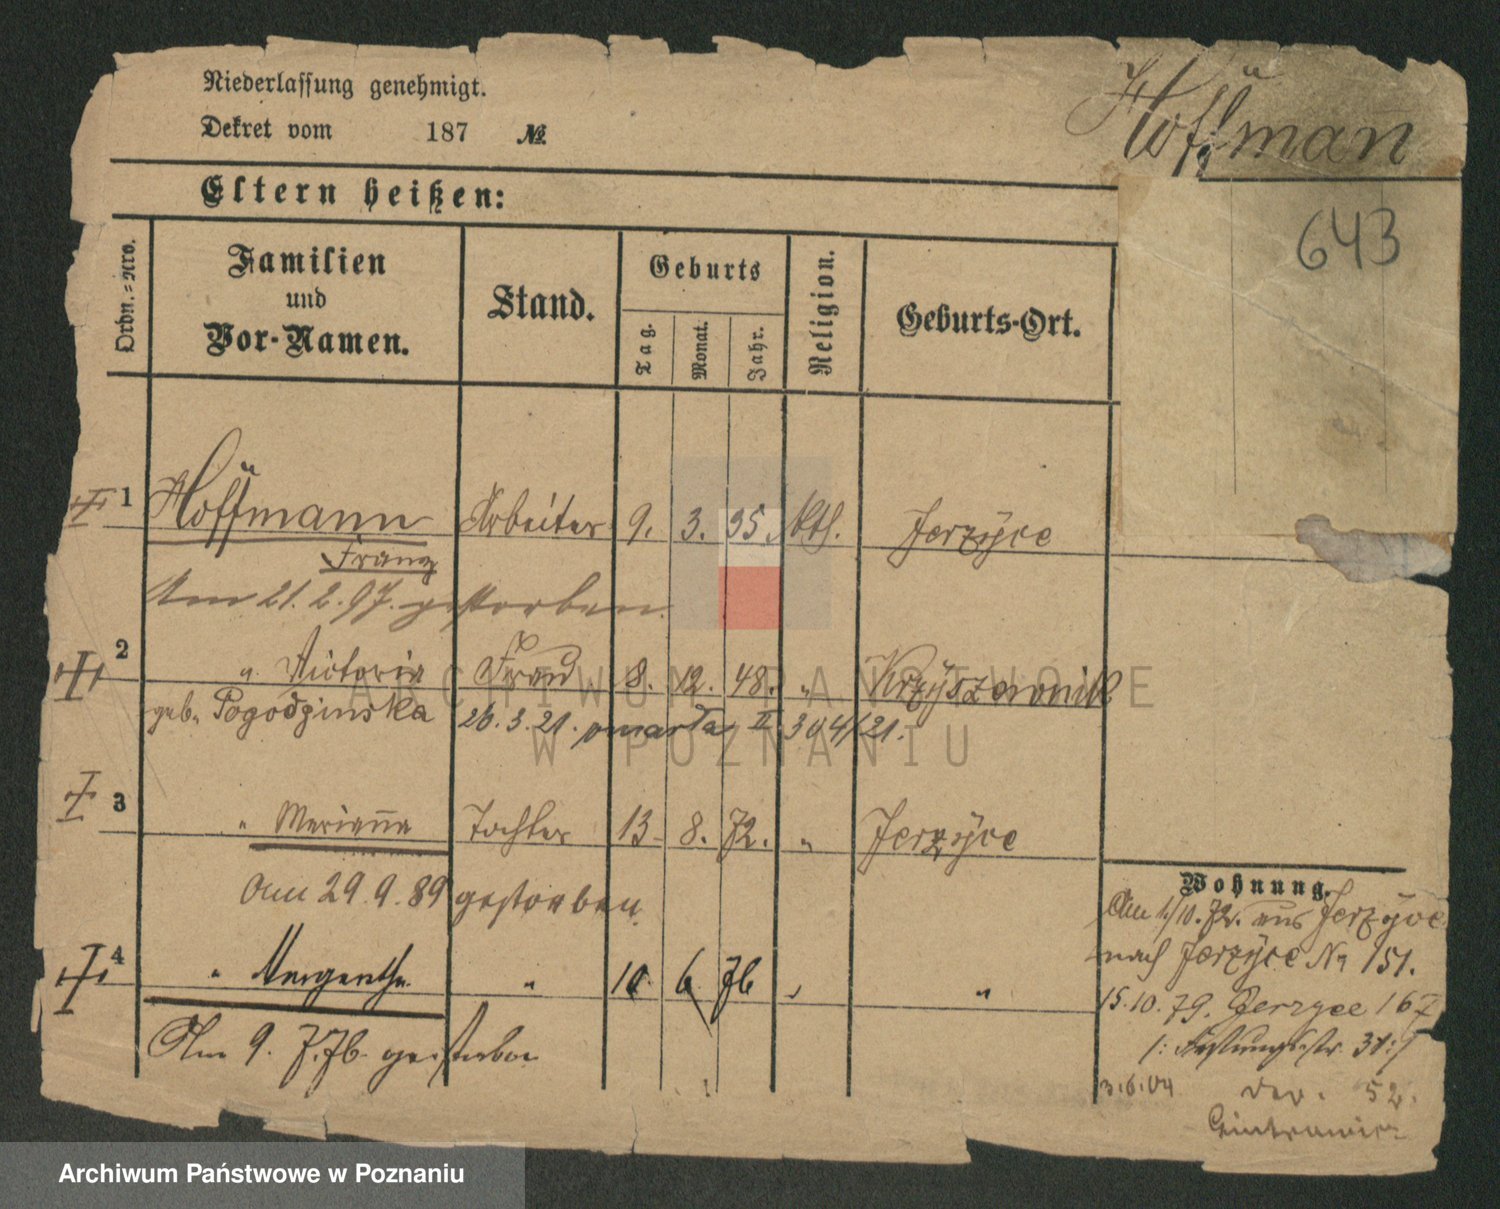 Niederlassung genehmigt.
Dekret vom 187 №
Hoffman
643
Eltern heißen:
Ordn.=Nro.
Familien
und
Vor-Namen.
Stand.
Geburts
Tag.
Monat.
Jahr.
Religion.
Geburts-Ort.
1 Hoffmann Arbeiter 9. 3. 35. kth. Jerzyce
Franz
Am 21.2.97. gestorben.
2 " Victoria Frau 8. 12. 48. " Krzyszownik
geb. Pogodzinska 26.3.21. zmarła II 304/21.
3 " Marianna Tochter 13. 8. 72. " Jerzyce
Am 29.9.89 gestorben.
4 " Margaretha " 10. 6. 76 " "
Am 9. 7. 76. gestorben
Wohnung.
Am 1./10.72. aus Jerzyce
nach Jerzyce No 151.
15.10.79. Jerzyce 167
3.6.04 52.
ARCHIWUM PAŃSTWOWE
W POZNANIU
Archiwum Państwowe w Poznaniu